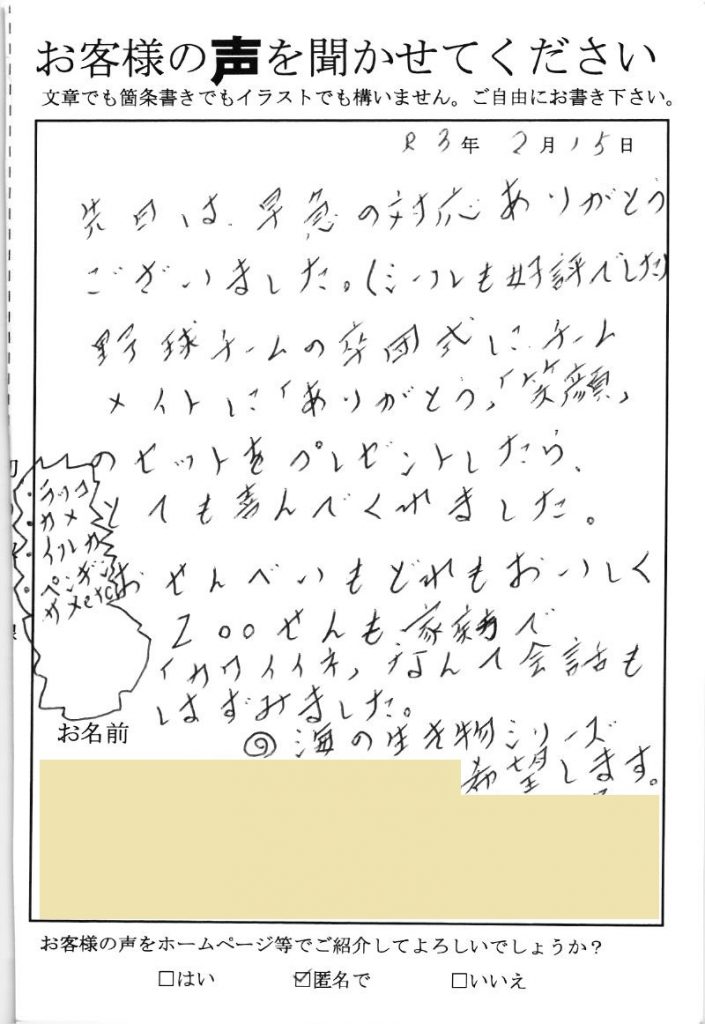 お客様の声を聞かせてください
文章でも箇条書きでもイラストでも構いません。ご自由にお書き下さい。
R3年 2月15日
先日は、早急の対応ありがとう
ございました。(シールも好評でした)
野球チームの卒団式に、チーム
メイトに「ありがとう」「笑顔」
のセットをプレゼントしたら、
とても喜んでくれました。
おせんべいもどれもおいしく
Zooせんも家族で
「カワイイネ」なんて会話も
はずみました。
◎海の生き物シリーズ
希望します。
・ラッコ
・カメ
・イルカ
・ペンギン
カメetc
お名前
お客様の声をホームページ等でご紹介してよろしいでしょうか？
□はい ☑匿名で □いいえ